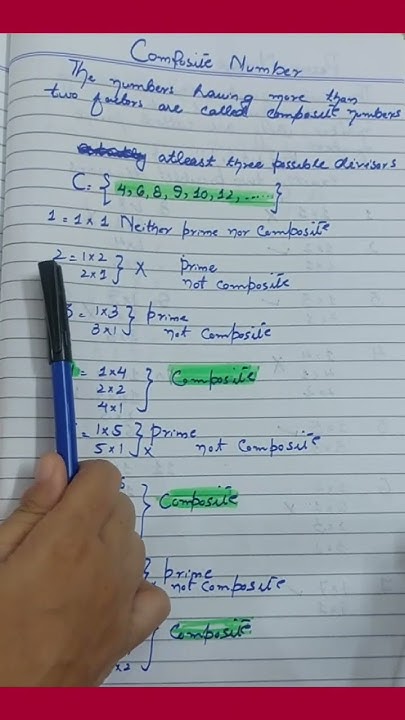 Composite Number
The numbers having more than
two factors are called composit numbers
atleast three possible divisors
C = { 4, 6, 8, 9, 10, 12, ..... }
1 = 1×1 Neither prime nor Composite
2 = 1×2 } X prime
2×1 not composite
3 = 1×3 } prime
3×1 not composite
= 1×4 } Composite
2×2
4×1
= 1×5 } prime
5×1 x not Composite
} Composite
} prime
not Composite
} Composite
×2